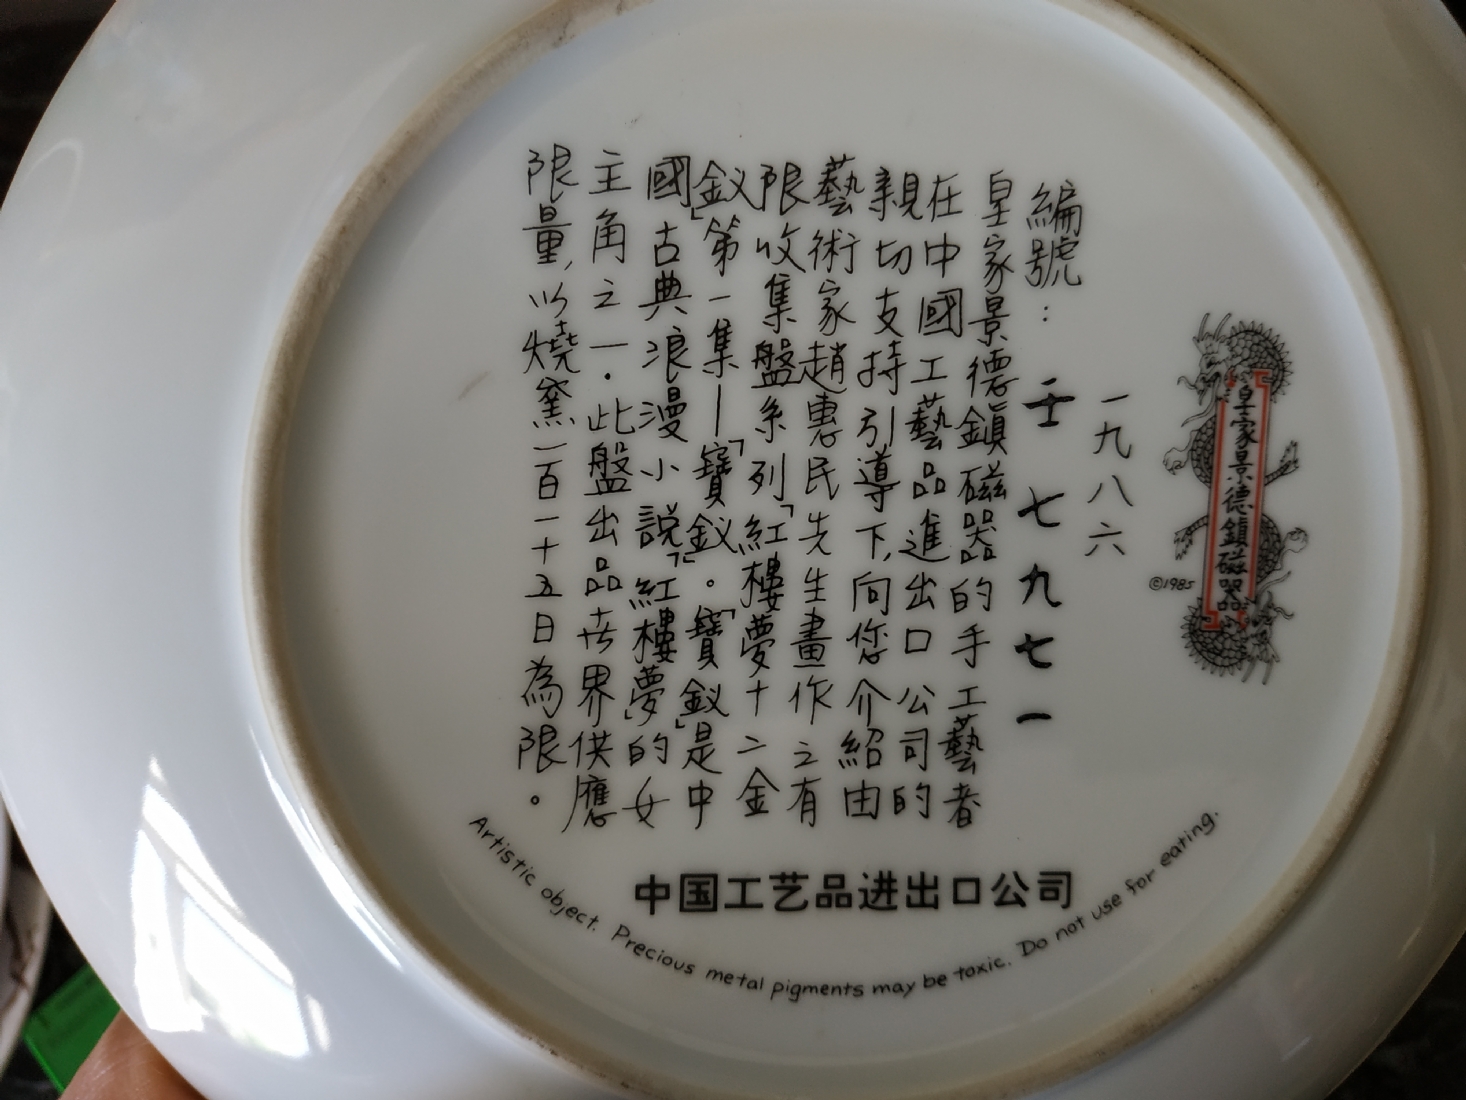 皇家景德鎮磁器
©1985
一九八六
編號：壬七九七一
皇家景德鎮磁器的手工藝者
在中國工藝品進出口公司的
親切支持引導下，向您介紹由
藝術家趙惠民先生畫作之有
限收集盤系列「紅樓夢十二金
釵」第一集—「寶釵」。「寶釵」是中
國古典浪漫小說「紅樓夢」的女
主角之一．此盤出品世界供應
限量，以燒窯一百一十五日為限。
中国工艺品进出口公司
Artistic object. Precious metal pigments may be toxic. Do not use for eating.